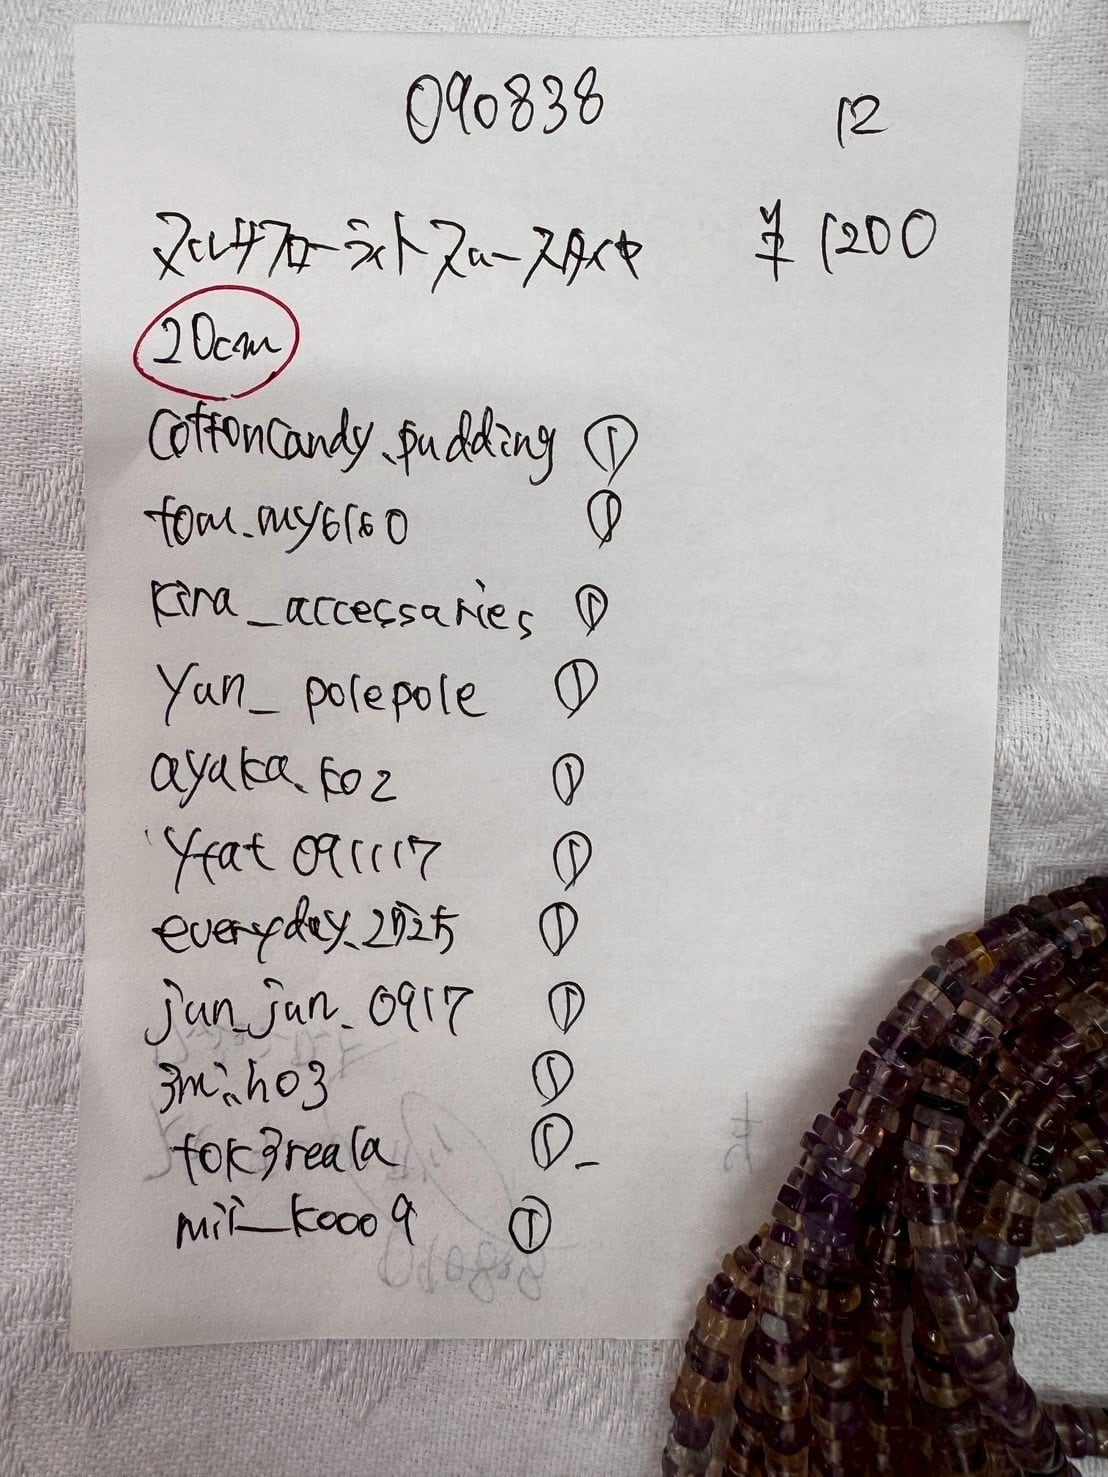 090838 12
マルチフローライトフロースタイヤ ¥1200
20cm
cottoncandy.pudding ①
tom.my6160 ①
kira_accessaries ①
yun_polepole ①
ayaka.k02 ①
yfat091117 ①
everyday.2525 ①
jun_jun_0917 ①
3mi.h03 ①
tok3reala ①
mii_k0009 ①